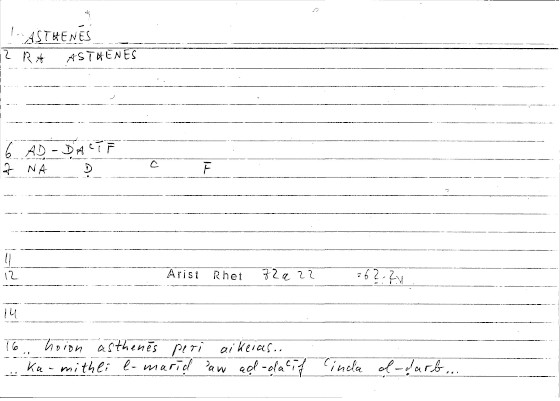 1 ASTHENĒS
2 RA ASTHENĒS
6 AḌ-ḌAʿĪF
7 NA Ḍ ʿ F̄
11
12 Arist Rhet 72a22 =62.7
14
16 .. hoion asthenēs peri aikeias..
.. ka-mithli l-marīḍ ʾaw aḍ-ḍaʿīf ʿinda ḍ-ḍarb...